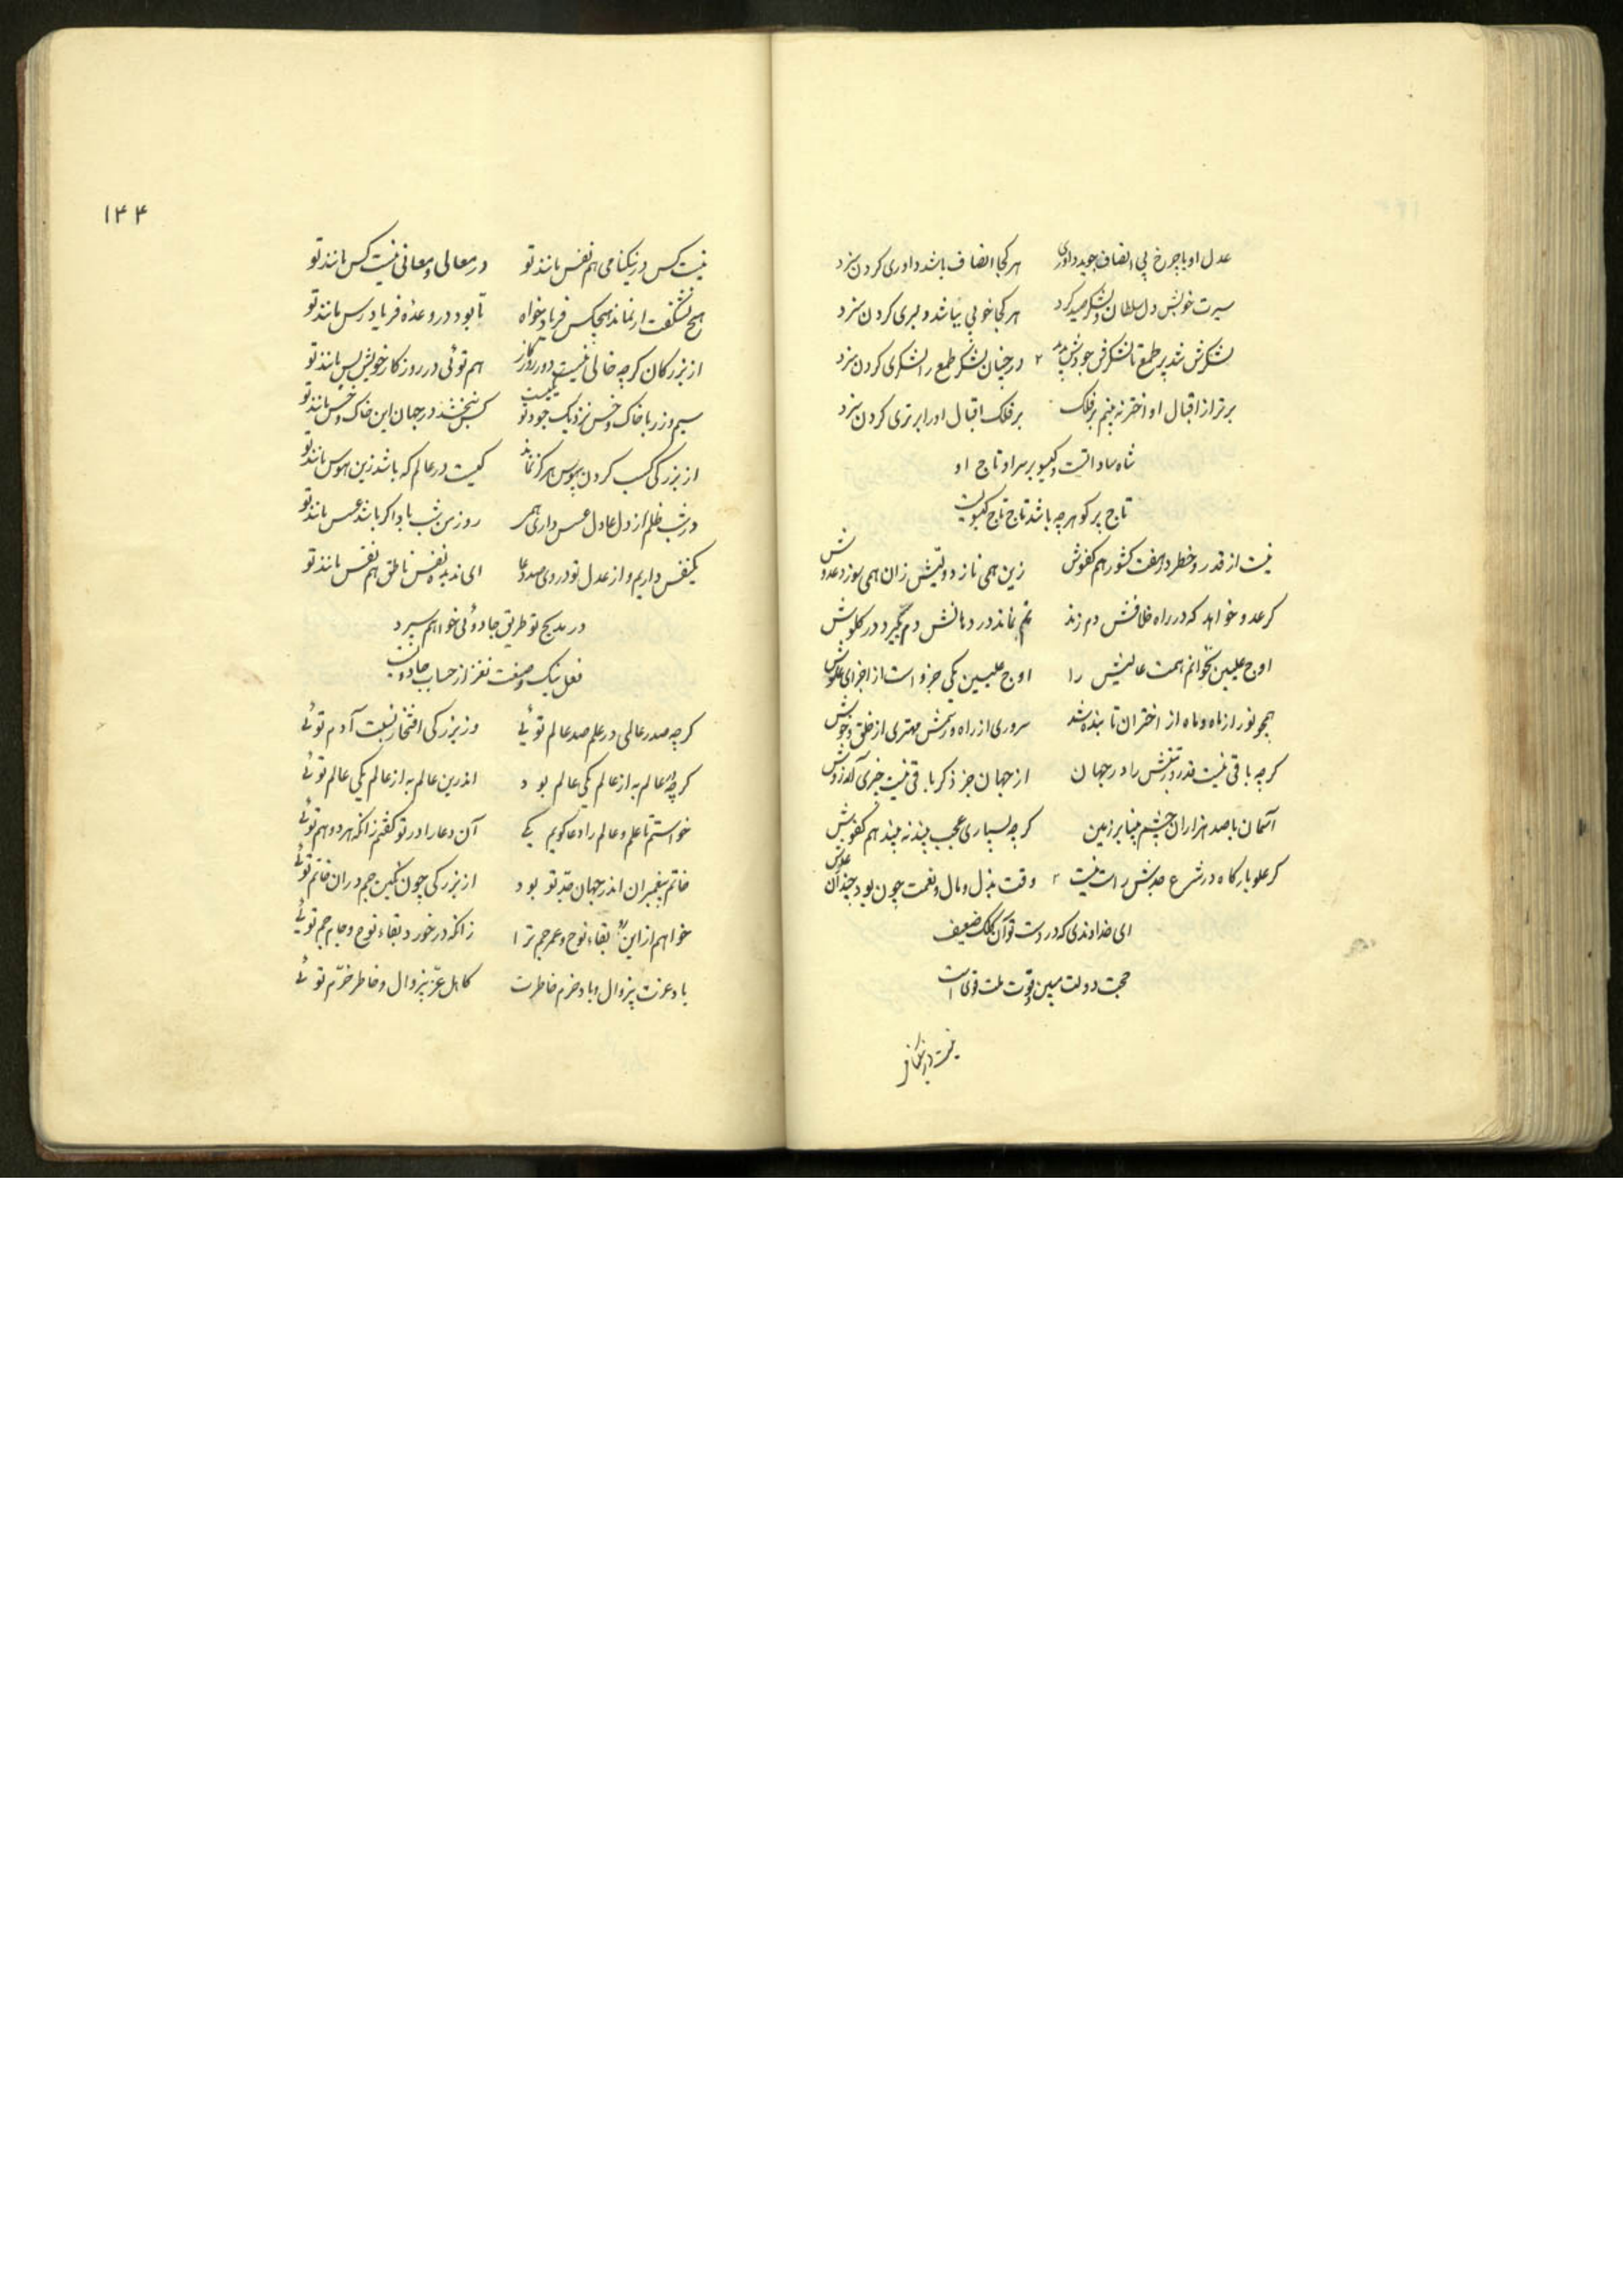 عدل او با چرخ بی انصاف جوید داوری هر کجا انصاف باشد داوری کردن سزد
سیرت خوبش دل سلطان و لشکر صید کرد هر کجا خوبی بباشد دلبری کردن سزد
لشکرش شد پر طمع تا لشکرش جودش بدید در چنان لشکر طمع را لشکری کردن سزد
برتر از اقبال او اختر نه بینم بر فلک بر فلک اقبال او را برتری کردن سزد
شاه ساداتست و گیسو بر سر او تاج او
تاج پر گوهر چه باشد تاج تاج گیسویست
نیست از قدر و خطر در هفت کشور هم کفوش زین همی نازد ولیش زان همی سوزد عدوش
گر عدو خواهد که در راه خلافش دم زند نم نماند در دهانش دم بگیرد در گلوش
اوج علیین نخوانم همت عالیش را اوج علیین یکی جزو است از اجزای علوش
همچو نور از ماه و ماه از اختران تابنده شد سروری از راه و رسمش مهتری از خلق و خوش
گرچه باقی نیست قدر و زینتش را در جهان از جهان جز ذکر باقی نیست چیزی آرزوش
آسمان با صد هزاران چشم بینا بر زمین گرچه بسیاری عجب بیند نه بیند هم کفوش
گر علو بارگاه در شرع جدش راست نیست وقت بذل و مال و نعمت چون بود چندان علوش
ای خداوندی که در دست تو آن کلک ضعیف
حجت دولت مبین و قوت ملت قوی است
نیست کس در نیکنامی
۱۴۴
نیست کس در نیکنامی هم نفس مانند تو در معالی و معانی نیست کس مانند تو
هیچ نشگفت ار نماند هیچکس فریاد خواه تا بود در وعده فریاد رس مانند تو
از بزرگان گرچه خالی نیست دور روزگار هم توئی در روزگار خویش بس مانند تو
سیم و زر با خاک و خس نزدیک جود تو یکیست کس نبخشد در جهان این خاک و خس مانند تو
از بزرگی کسب کردن بهوس هرگز نماند کیست در عالم که باشد زین هوس مانند تو
در شب ظلم از دل عادل عسس داری همی روز من شب باد اگر باشد عسس مانند تو
یکنفس داریم و از عدل تو در وی صد دعا ای ندیده نفس ناطق هم نفس مانند تو
در مدیح تو طریق جادوئی خواهم سپرد
فعل نیک و صفت نغز از حساب جادویست
گرچه صدر عالمی در علم صد عالم توئی وز بزرگی افتخار نسبت آدم توئی
گرچه در عالم به از عالم یکی عالم بود اندرین عالم به از عالم یکی عالم توئی
خواستم تا علم و عالم را دعا گویم یکی آن دعا را در تو گفتم زانکه هر دو هم توئی
خاتم پیغمبران اندر جهان جد تو بود از بزرگی چون نگین جم در آن خاتم توئی
خواهم از ایزد بقاء نوح و عمر جم ترا زانکه در خورد بقاء نوح و جام جم توئی
باد عزت بیزوال و باد خرم خاطرت کاهل عز بیزوال و خاطر خرم توئی